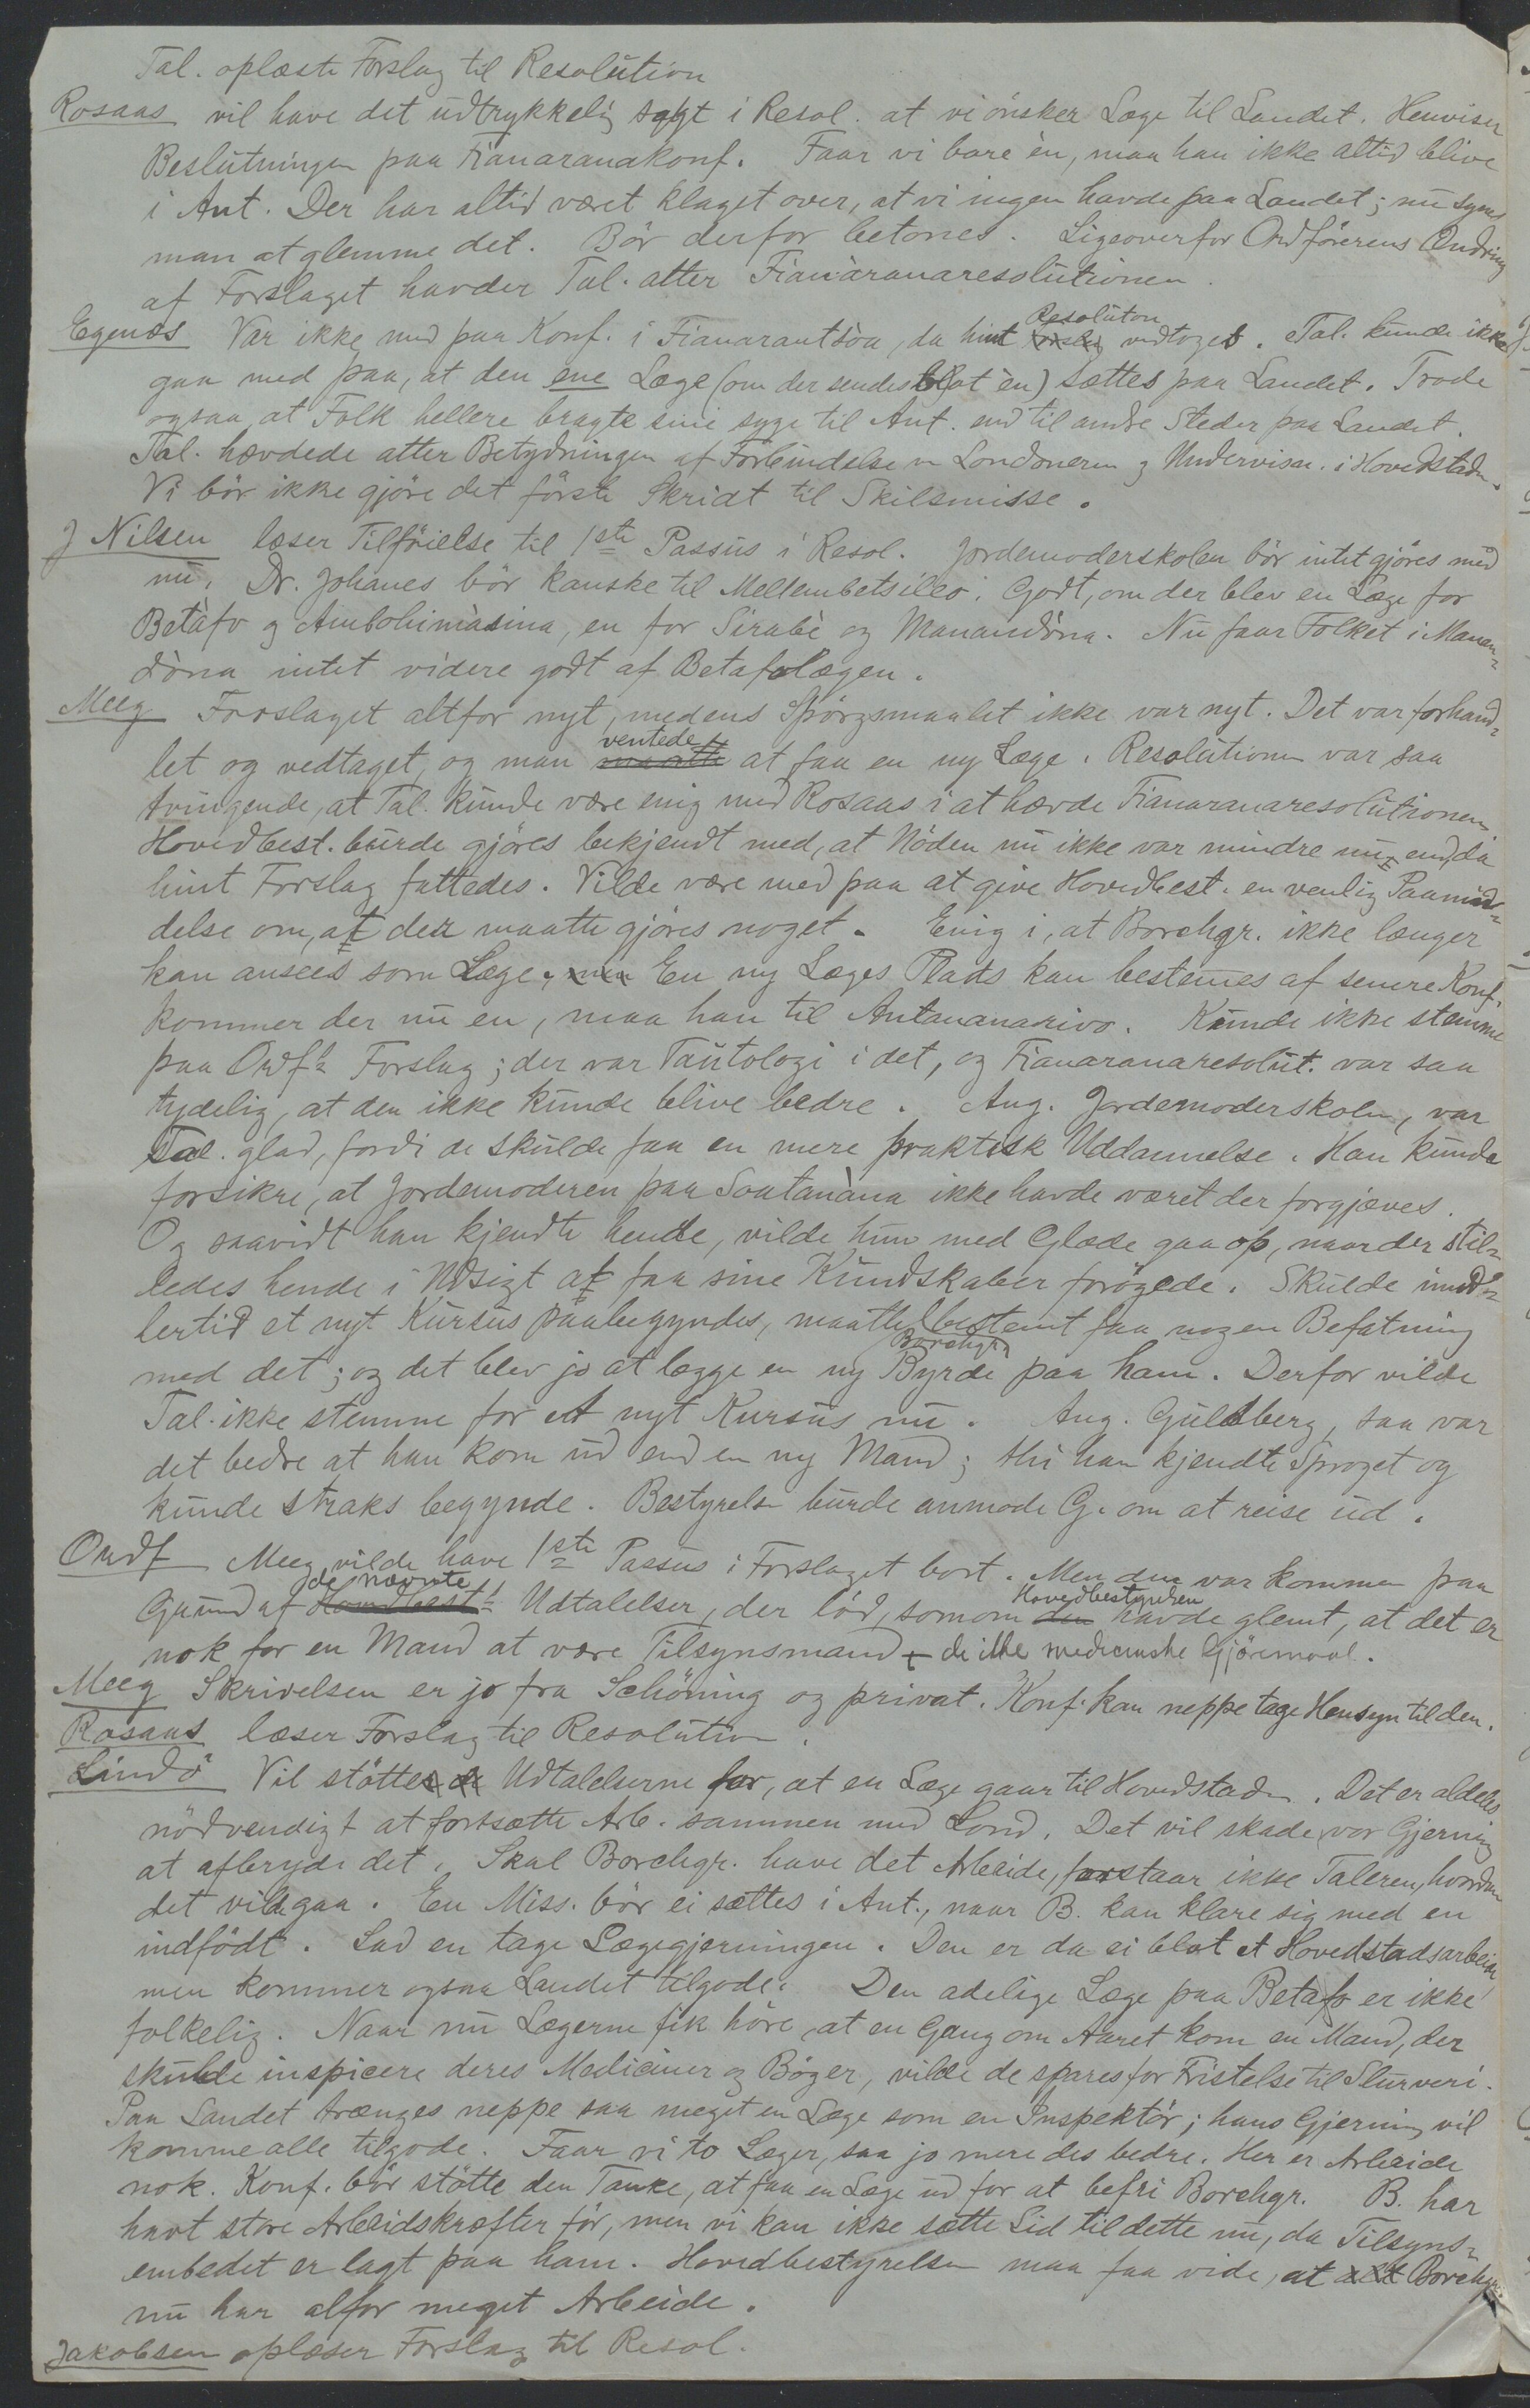 Tal. oplæste Forslag til Resolution
Rosaas vil have det udtrykkelig sagt i Resol. at vi ønsker Læge til Landet. Henviser
Beslutningen paa Fianaranakonf. Faar vi bare èn, maa han ikke altid blive
i Ant. Der har altid været klaget over, at vi ingen havde paa Landet; nu synes
man at glemme det. Bör derfor betones. Ligeoverfor Ordförerens Ændring
af Forslaget hævder Tal. atter Fianàranaresolutionen.
Egenæs Var ikke med paa Konf. i Fianarantsòa, da hint Resolution vedtoges. Tal. kunde ikke
gaa med paa, at den ene Læge (om der sendes blot èn) sættes paa Landet. Trode
ogsaa at Folk hellere bragte sine syge til Ant. end til andre Steder paa Landet.
Tal. hævdede atter Betydningen af Forbindelse m Londonerne og Underviser. i Hovedstaden.
Vi bör ikke gjöre det förste Skridt til Skilsmisse.
J Nilsen læser Tilföielse til 1ste Passus i Resol. Jordemoderskolen bör intet gjöres med
nu. Dr. Johanes bör kanske til Mellembetsileo. Godt, om der blev en Læge for
Betàfo og Ambohimàsina, en for Sirabè og Manandòna. Nu faar Folket i Manan-
dòna intet videre godt af Betafolægen.
Meeg Forslaget altfor nyt, medens Spörgsmaalet ikke var nyt. Det var forhand-
let og vedtaget, og man ventede at faa en ny Læge. Resolutionen var saa
tvingende, at Tal. kunde være enig med Rosaas i at hævde Fianaranaresolutionen.
Hovedbest. burde gjöres bekjendt med, at Nöden nu ikke var mindre nu, end da
hint Forslag fattedes. Vilde være med paa at give Hovedbest. en venlig Paamin-
delse om, at der maatte gjöres noget. Enig i, at Borchgr. ikke længer
kan ansees som Læge. En ny Læges Plads kan bestemes af senere Konf.
kommer der nu en, maa han til Antananarivo. Kunde ikke stemme
paa Ordf's Forslag; der var Tautologi i det, og Fianaranaresolut. var saa
tydelig, at den ikke kunde blive bedre. Ang. Jordemoderskolen, var
Tal. glad, fordi de skulde faa en mere praktisk Uddannelse. Han kunde
forsikre, at Jordemoderen paa Soatanàna ikke havde været der forgjæves.
Og saavidt han kjendte hende, vilde hun med Glæde gaa op, naar der stil-
ledes hende i Udsigt at faa sine Kundskaber forögede. Skulde imid-
lertid et nyt Kursus paabegyndes, maatte Borchgr. bestemt faa nogen Befatning
med det; og det blev jo at lægge en ny Byrde paa ham. Derfor vilde
Tal. ikke stemme for et nyt Kursus nu. Ang. Guldberg, saa var
det bedre at han kom ud end en ny Mand; thi han kjendte Sproget og
kunde straks begynde. Bestyrelsen burde anmode G. om at reise ud.
Ordf Meeg vilde have 1ste Passus i Forslaget bort. Men den var kommen paa
Grund af de nævnte Udtalelser, der lød, somom Hovedbestyrelsen havde glemt, at det er
nok for en Mand at være Tilsynsmand + de ikke medicinske Gjöremaal.
Meeg Skrivelsen er jo fra Schöning og privat. Konf. kan neppe tage Hensyn til den.
Rosaas læser Forslag til Resolution.
Lindö Vil støtte Udtalelserne for, at en Læge gaar til Hovedstaden. Det er aldeles
nödvendigt at fortsætte Arb. sammen med Lond. Det vil skade vor Gjerning
at afbryde det. Skal Borchgr. have det Arbeide, forstaar ikke Taleren, hvordan
det vil gaa. En Miss. bör ei sættes i Ant., naar B. kan klare sig med en
indfödt. Lad en tage Lægegjerningen. Den er da ei blot et Hovedstadsarbeide,
men kommer ogsaa Landet tilgode. Den adelige Læge paa Betafo er ikke
folkelig. Naar nu Lægerne fik höre, at en Gang om Aaret kom en Mand, der
skulde inspicere deres Mediciner og Böger, vilde de spares for Fristelse til Slurveri.
Paa Landet trænges neppe saa meget en Læge som en Inspektör; hans Gjerning vil
komme alle tilgode. Faar vi to Læger, saa jo mere des bedre. Her er Arbeide
nok. Konf. bör stötte den Tanke, at faa en Læge ud for at befri Borchgr. B. har
havt store Arbeidskræfter för, men vi kan ikke sætte Lid til dette nu, da Tilsyns-
embedet er lagt paa ham. Hovedbestyrelsen maa faa vide, at Borchgr.
nu har alfor meget Arbeide.
Jakobsen oplæser Forslag til Resol.